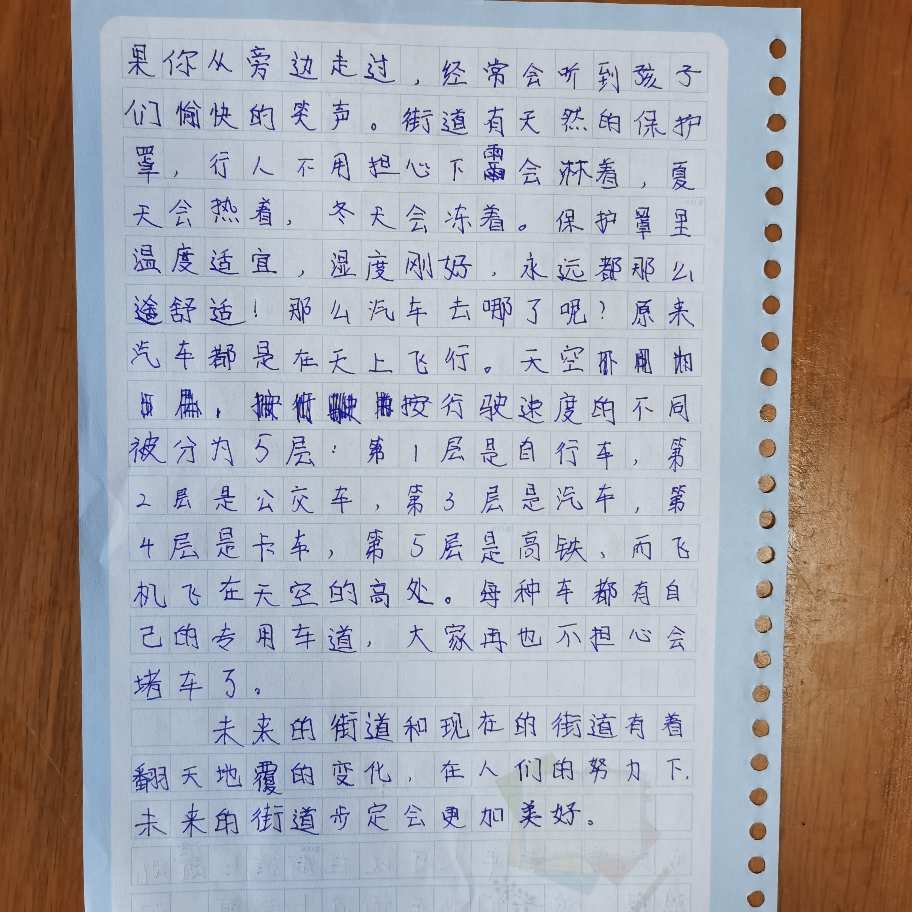 果你从旁边走过，经常会听到孩子
们愉快的笑声。街道有天然的保护
罩，行人不用担心下会淋着，夏
天会热着，冬天会冻着。保护罩里
温度适宜，湿度刚好，永远都那么
舒适！那么汽车去哪了呢？原来
汽车都是在天上飞行。天空
按行驶速度的不同
被分为5层：第1层是自行车，第
2层是公交车，第3层是汽车，第
4层是卡车，第5层是高铁、而飞
机飞在天空的高处。每种车都有自
己的专用车道，大家再也不担心会
堵车了。
未来的街道和现在的街道有着
翻天地覆的变化，在人们的努力下，
未来的街道步定会更加美好。